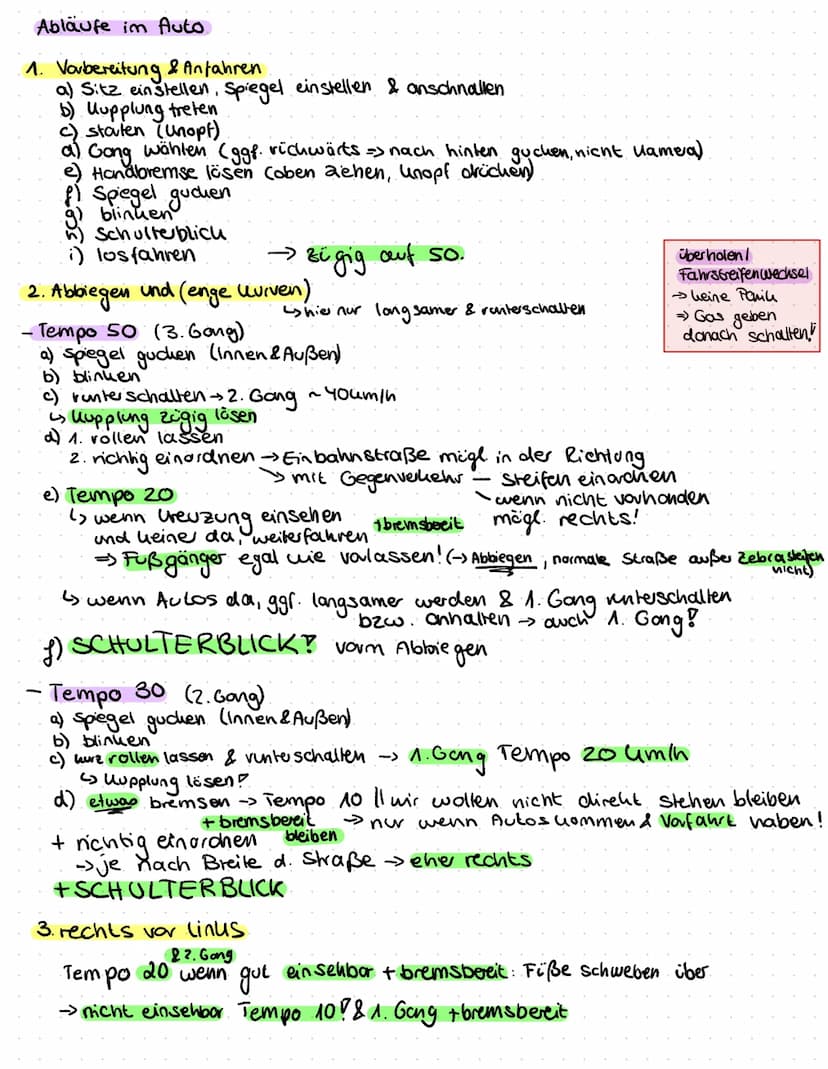 Abläufe im Auto
1. Vorbereitung & Anfahren
a) Sitz einstellen, Spiegel einstellen & anschnallen
b) Kupplung treten
c) starten (Knopf)
d) Gang wählen (ggf. rückwärts => nach hinten gucken, nicht Kamera)
e) Handbremse lösen (oben ziehen, Knopf drücken)
f) Spiegel gucken
g) blinken
h) Schulterblick
i) losfahren → zügig auf 50.
überholen/
Fahrstreifenwechsel
→ keine Panik
=> Gas geben
danach schalten!
2. Abbiegen und (enge Kurven)
↳ hier nur langsamer & runterschalten
- Tempo 50 (3. Gang)
a) Spiegel gucken (Innen & Außen)
b) blinken
c) runterschalten → 2. Gang ~40km/h
↳ Kupplung zügig lösen
d) 1. rollen lassen
2. richtig einordnen → Einbahnstraße mögl in der Richtung
↘ mit Gegenverkehr - Streifen einordnen
wenn nicht vorhanden
mögl. rechts!
e) Tempo 20
↳ wenn Kreuzung einsehen +bremsbereit
und keiner da, weiterfahren
=> Fußgänger egal wie vorlassen! (→ Abbiegen, normale Straße außer Zebrastreifen
nicht)
↳ wenn Autos da, ggf. langsamer werden & 1. Gang runterschalten
bzw. anhalten → auch 1. Gang!
f) SCHULTERBLICK! vorm Abbiegen
- Tempo 30 (2. Gang)
a) Spiegel gucken (Innen & Außen)
b) blinken
c) kurz rollen lassen & runterschalten -> 1. Gang Tempo 20 km/h
↳ Kupplung lösen!
d) etwas bremsen -> Tempo 10 || wir wollen nicht direkt stehen bleiben
+ bremsbereit bleiben → nur wenn Autos kommen & Vorfahrt haben!
+ richtig einordnen
→ je nach Breite d. Straße → eher rechts
+ SCHULTERBLICK
3. rechts vor links
& 2. Gang
Tempo 20 wenn gut einsehbar + bremsbereit: Füße schweben über
→ nicht einsehbar Tempo 10! & 1. Gang +bremsbereit